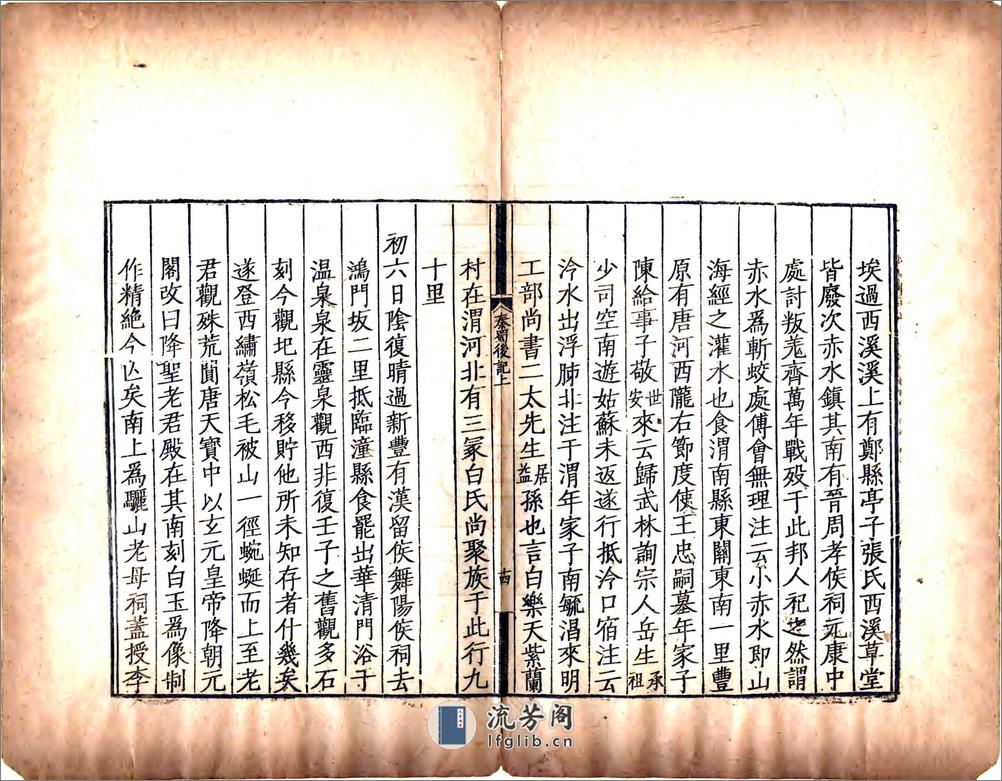 埃過西溪溪上有鄭縣亭子張氏西溪草堂
皆廢次赤水鎮其南有晉周孝侯祠元康中
處討叛羗齊萬年戰歿于此邦人祀之然謂
赤水爲斬蛟處傅會無理注云小赤水即山
海經之灌水也食渭南縣東關東南一里豐
原有唐河西隴右節度使王忠嗣墓年家子
陳給事子敬世安來云歸武林詢宗人岳生承祖
少司空南遊姑蘇未返遂行抵泠口宿注云
泠水出浮肺北注于渭年家子南毓淐來明
工部尚書二太先生居益孫也言白樂天紫蘭
秦蜀後記上
十四
村在渭河北有三冢白氏尚聚族于此行九
十里
初六日陰復晴過新豐有漢留侯舞陽侯祠去
鴻門坂二里抵臨潼縣食罷出華清門浴于
温泉泉在靈泉觀西非復壬子之舊觀多石
刻今觀圯縣令移貯他所未知存者什幾矣
遂登西繡嶺松毛被山一徑蜿蜒而上至老
君觀殊荒閴唐天寶中以玄元皇帝降朝元
閣改曰降聖老君殿在其南刻白玉爲像制
作精絶今亾矣南上爲驪山老母祠葢授李
流芳阁
lfglib.cn